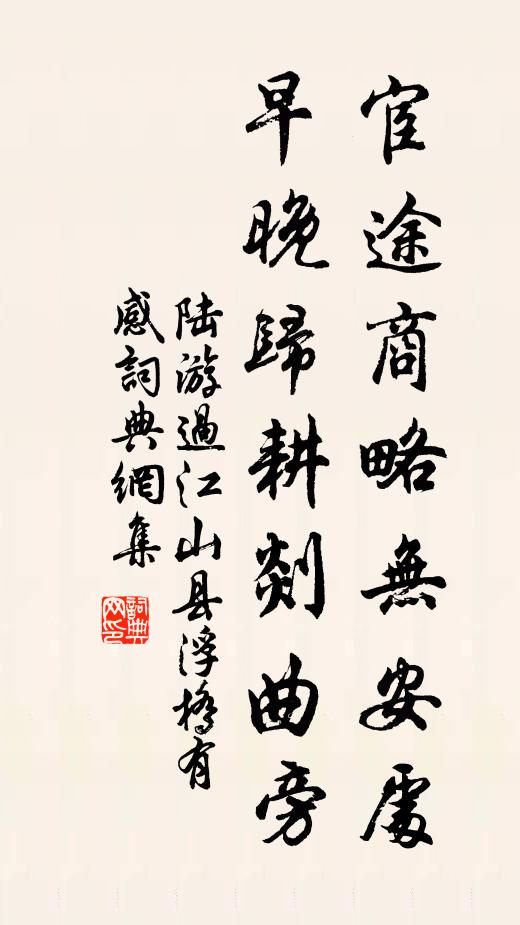 宦途商略無安處
早晚歸耕剡曲旁
陆游過江山县浮橋有
感詞典網集
詞典
网印